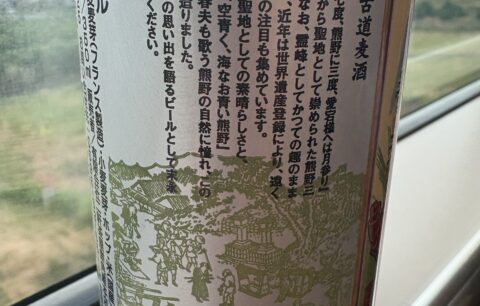 古道麦酒
七度、熊野に三度、愛宕様へは月参り」
から聖地として崇められた熊野三
なお、霊峰としてかつての趣のまま
、近年は世界遺産登録により、遠く
の注目も集めています。
聖地としての素晴らしさと、
空青く、海なお青い熊野」
春夫も歌う熊野の自然に憧れ、この
造りました。
の思い出を語るビールとして末永
ください。
ル
麦麦芽(フランス製造)・小麦麦芽・ホップ・大麦
350ml